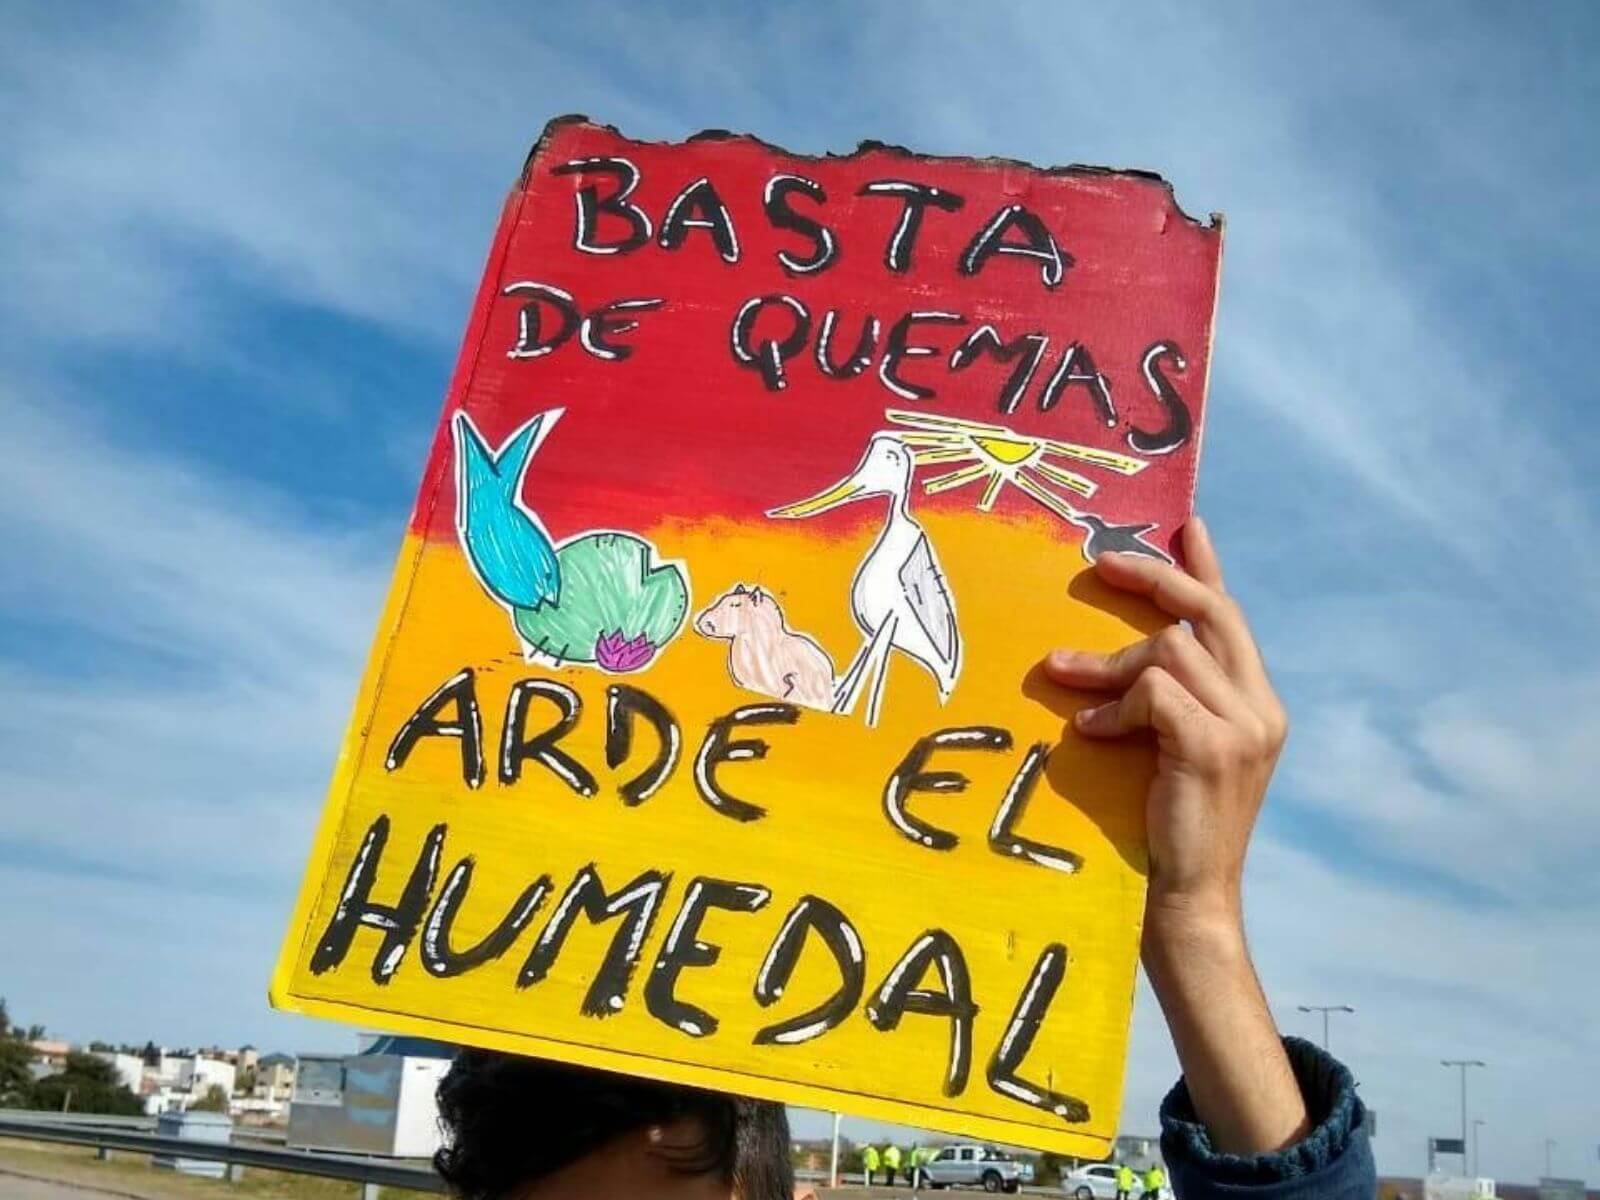 BASTA
DE QUEMAS
ARDE EL
HUMEDAL